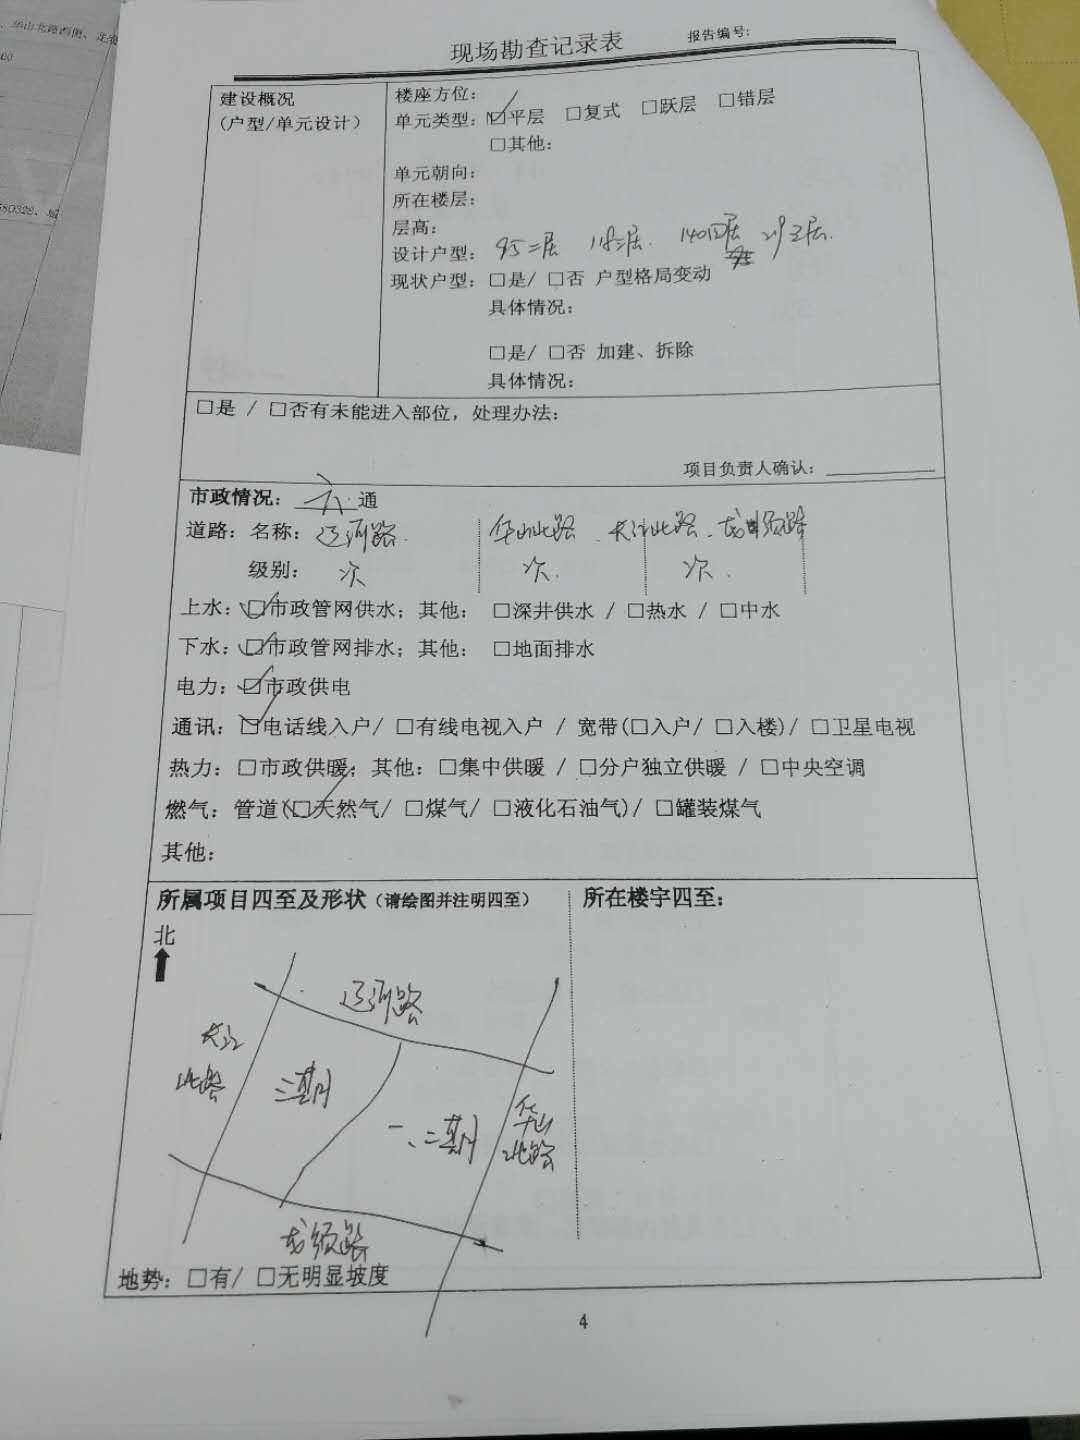 华山北路西侧、龙须
现场勘查记录表 报告编号:
建设概况
(户型/单元设计)
楼座方位:
单元类型: ☑平层 □复式 □跃层 □错层
□其他:
单元朝向:
所在楼层:
层高:
设计户型: 95二居 118三居. 140四居
现状户型: □是/ □否 户型格局变动
具体情况:
□是/ □否 加建、拆除
具体情况:
□是 / □否有未能进入部位, 处理办法:
项目负责人确认:
市政情况: 六 通
道路: 名称: 辽河路. 华山北路. 长江北路. 龙须路
级别: 次 次. 次.
上水: ☑市政管网供水; 其他: □深井供水 / □热水 / □中水
下水: ☑市政管网排水; 其他: □地面排水
电力: ☑市政供电
通讯: ☑电话线入户/ □有线电视入户 / 宽带(□入户/ □入楼)/ □卫星电视
热力: □市政供暖; 其他: □集中供暖 / □分户独立供暖 / □中央空调
燃气: 管道(☑天然气/ □煤气/ □液化石油气)/ □罐装煤气
其他:
所属项目四至及形状(请绘图并注明四至)
所在楼宇四至:
北
辽河路
长江
北路
三期
一、二期
华山
北路
龙须路
地势: □有/ □无明显坡度
4